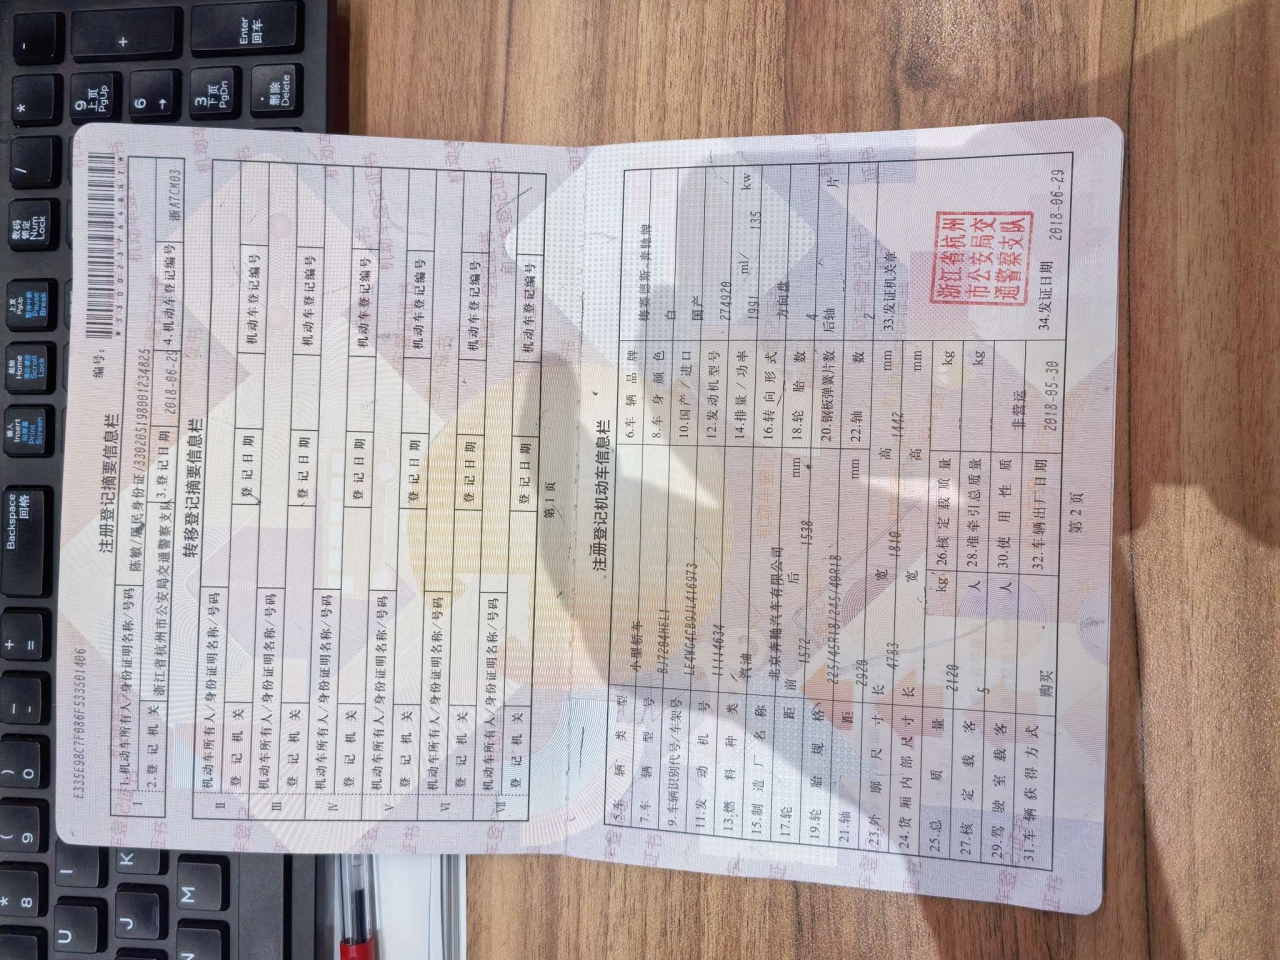 E335E98C7F086F533501406
注册登记摘要信息栏
编号：
*330023764887*
Ⅰ
1.机动车所有人/身份证明名称/号码 陈敏/居民身份证/330205198001234825
2.登记机关 浙江省杭州市公安局交通警察支队 3.登记日期 2018-06-29 4.机动车登记编号 浙A7CM03
转移登记摘要信息栏
Ⅱ
机动车所有人/身份证明名称/号码
登记机关 登记日期 机动车登记编号
Ⅲ
机动车所有人/身份证明名称/号码
登记机关 登记日期 机动车登记编号
Ⅳ
机动车所有人/身份证明名称/号码
登记机关 登记日期 机动车登记编号
Ⅴ
机动车所有人/身份证明名称/号码
登记机关 登记日期 机动车登记编号
Ⅵ
机动车所有人/身份证明名称/号码
登记机关 登记日期 机动车登记编号
Ⅶ
机动车所有人/身份证明名称/号码
登记机关 登记日期 机动车登记编号
第1页
注册登记机动车信息栏
5.车辆类型 小型轿车 6.车辆品牌 梅赛德斯-奔驰牌
7.车辆型号 BJ7204HEL1 8.车身颜色 白
9.车辆识别代号/车架号 LE4WG4CB9JL416973 10.国产/进口 国产
11.发动机号 11114634 12.发动机型号 274920
13.燃料种类 汽油 14.排量/功率 1991 ml/ 135 kw
15.制造厂名称 北京奔驰汽车有限公司 16.转向形式 方向盘
17.轮距 前 1572 后 1538 mm 18.轮胎数 4
19.轮胎规格 225/45R18/245/40R18 20.钢板弹簧片数 后轴 片
21.轴距 2920 mm 22.轴数 2
23.外廓尺寸 长 4783 宽 1810 高 1442 mm 33.发证机关章
24.货厢内部尺寸 长 宽 高 mm
25.总质量 2120 kg 26.核定载质量 kg
27.核定载客 5 人 28.准牵引总质量 kg
29.驾驶室载客 人 30.使用性质 非营运
31.车辆获得方式 购买 32.车辆出厂日期 2018-05-30 34.发证日期 2018-06-29
浙江省杭州
市公安局交
通警察支队
第2页
Backspace
回格
插入
Insert
Print
Screen
Home
Scroll
Lock
上页
PgUp
Pause
Break
数码
锁定
Num
Lock
/
*
-
9
上页
PgUp
+
6
→
3
下页
PgDn
Enter
回车
.
删除
Delete
+
=
-
)
0
(
9
*
8
U
I
J
K
N
M